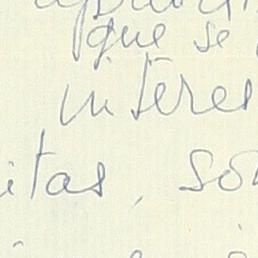 que se
intères
itas, so